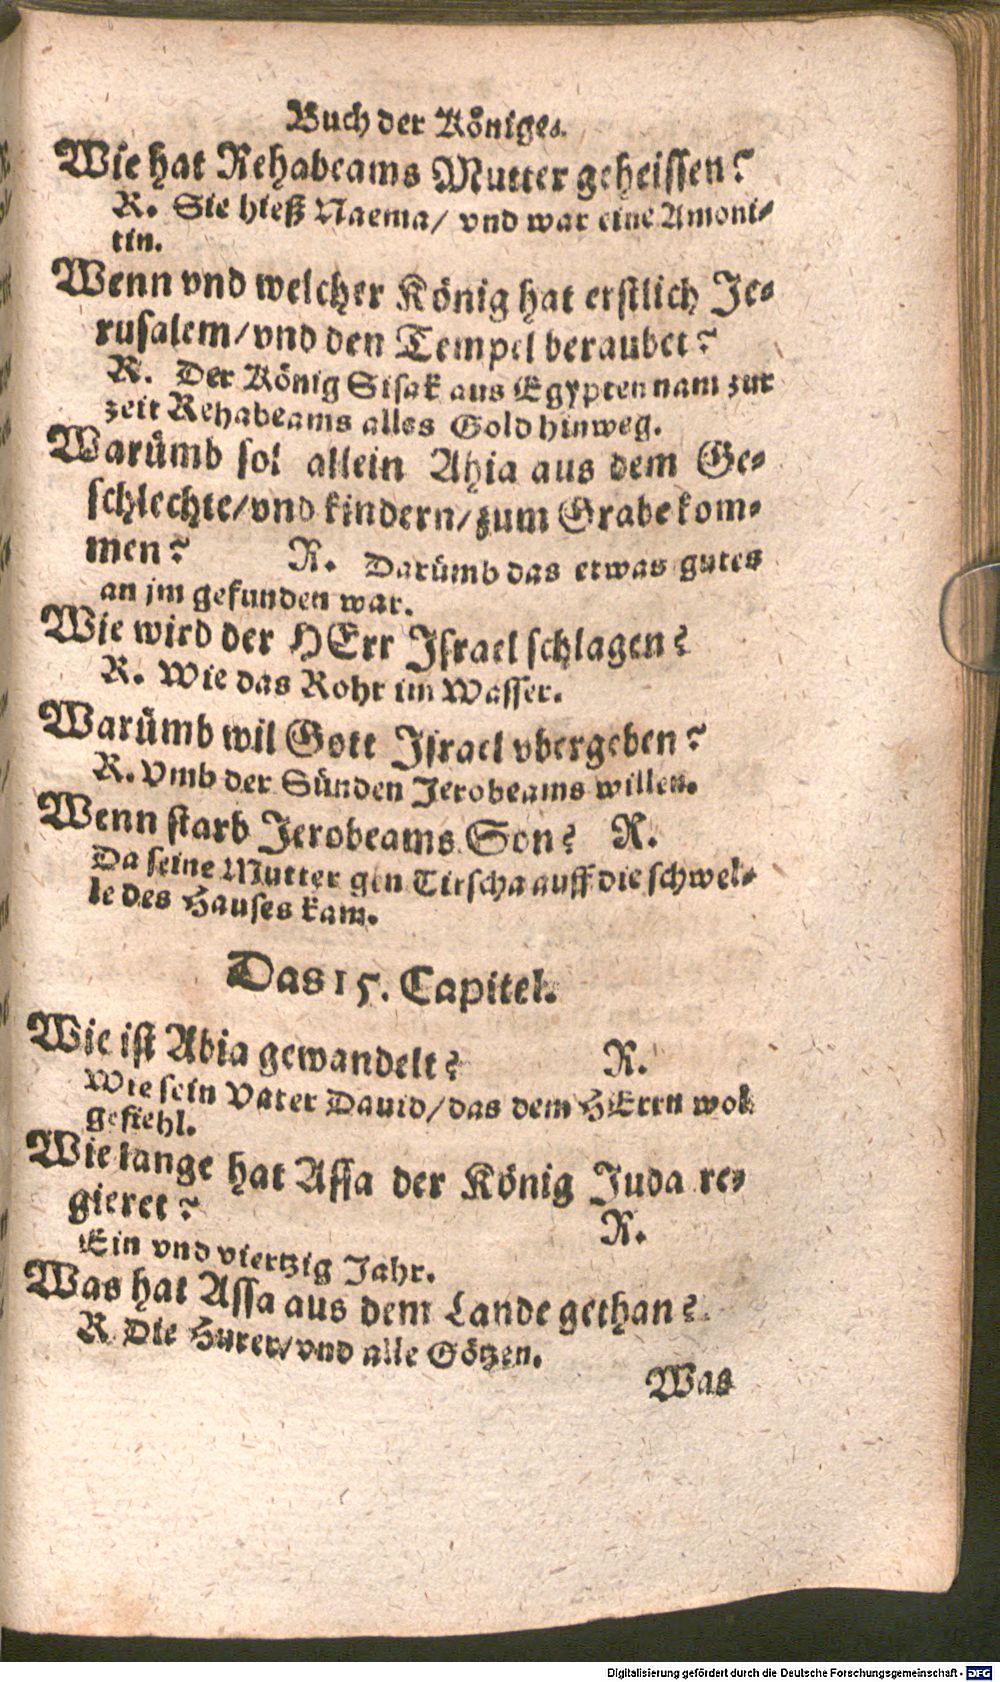 Buch der Könige.
Wie hat Rehabeams Mutter geheissen?
R. Sie hieß Naema/ vnd war eine Amoni-
tin.
Wenn vnd welcher König hat erstlich Je-
rusalem/vnd den Tempel beraubet?
R. Der König Sisak aus Egypten nam zur
zeit Rehabeams alles Gold hinweg.
Warümb sol allein Ahia aus dem Ge-
schlechte/vnd kindern/zum Grabe kom-
men? R. Darümb das etwas gutes
an jm gefunden war.
Wie wird der HErr Israel schlagen?
R. Wie das Rohr im Wasser.
Warümb wil Gott Israel vbergeben?
R. Vmb der Sünden Jerobeams willen.
Wenn starb Jerobeams Son? R.
Da seine Mutter gen Tirscha auff die schwel-
le des Hauses kam.
Das 15. Capitel.
Wie ist Abia gewandelt? R.
Wie sein Vater Dauid/das dem HErrn wol
gefiehl.
Wie lange hat Assa der König Juda re-
gieret? R.
Ein vnd viertzig Jahr.
Was hat Assa aus dem Lande gethan?
R Die Hurer/vnd alle Götzen.
Was
Digitalisierung gefördert durch die Deutsche Forschungsgemeinschaft - DFG